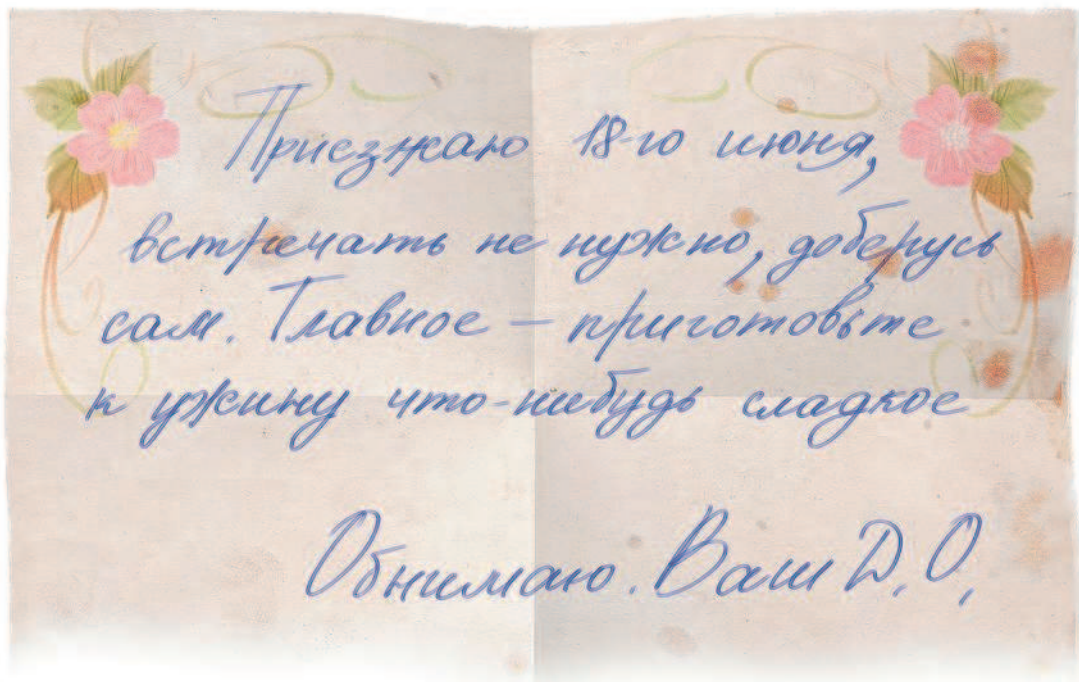 Приезжаю 18-го июня,
встречать не нужно, доберусь
сам. Главное – приготовьте
к ужину что-нибудь сладкое
Обнимаю. Ваш Д. О.